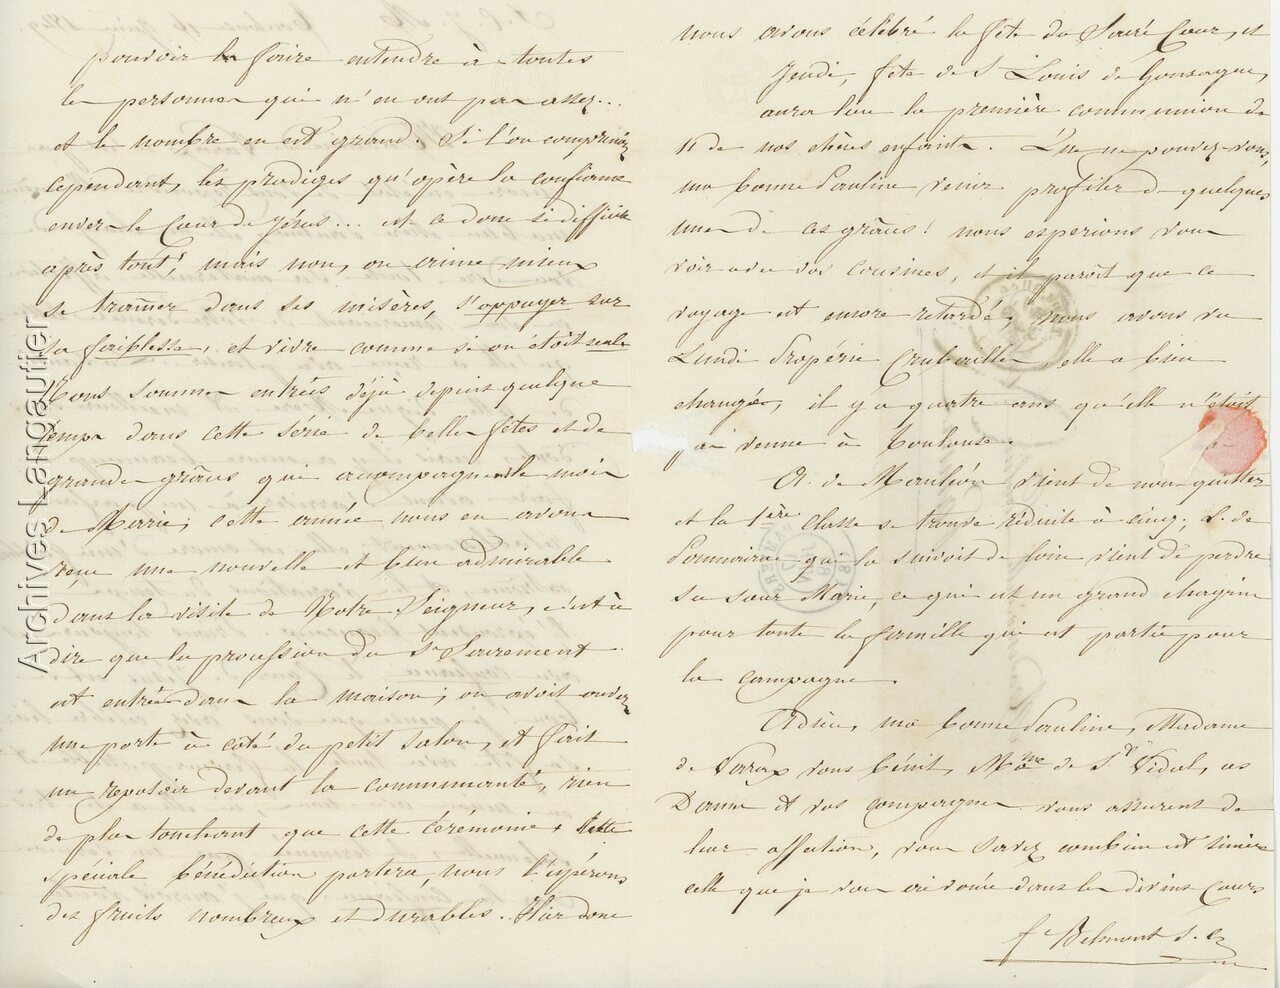 pouvoir la faire entendre à toutes
les personnes qui n'en ont pas assez...
et le nombre en est grand. Si l'on comprenoit
cependant, les prodiges qu'opère la confiance
envers le Cœur de Jésus... est ce donc si difficile
après tout, mais non, on aime mieux
se traîner dans ses misères, s'appuyer sur
sa faiblesse, et vivre comme si on étoit seule
Nous sommes entrés déjà depuis quelque
temps dans cette série de belles fêtes et de
grandes grâces qui accompagnent le mois
de Marie, cette année nous en avons
reçu une nouvelle et bien admirable
dans la visite de Notre Seigneur, c'est à
dire que la procession du St Sacrement
est entrée dans la maison; on avoit ouvert
une porte à côté du petit salon, et fait
un reposoir devant la communauté, rien
de plus touchant que cette cérémonie + cette
spéciale bénédiction portera, nous l'espérons
des fruits nombreux et durables. Hier donc
nous avons célébré la fête du Sacré Cœur, et
Jeudi, fête de St Louis de Gonzague,
aura lieu la première communion de
11 de nos chères enfants. Que ne pouvez-vous,
ma bonne Pauline venir profiter de quelques
unes de ces grâces! nous espérions vous
voir avec vos cousines, et il paroît que ce
voyage est encore retardé, nous avons vu
Lundi Prospérie elle a bien
changée, il y a quatre ans qu'elle n'étoit
pas venue à Toulouse.
A. de Mauléon vient de nous quitter
et la 1ère classe se trouve réduite à cinq; L. de
qui la suivoit de loin vient de perdre
sa sœur Marie, ce qui est un grand chagrin
pour toute la famille qui est partie pour
la campagne.
Adieu, ma bonne Pauline, Madame
de Varax vous bénit, Mme de St Vidal, ces
Dames et vos compagnes vous assurent de
leur affection, vous savez combien est sincère
celle que je vous ai vouée dans les divins Cœurs
f Belmont s. c.
Archives Langautier